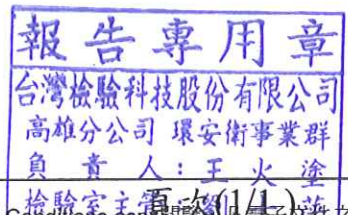 報告專用章
台灣檢驗科技股份有限公司
高雄分公司 環安衛事業群
負責人：王火塗
檢驗室主管
頁次(1/1)